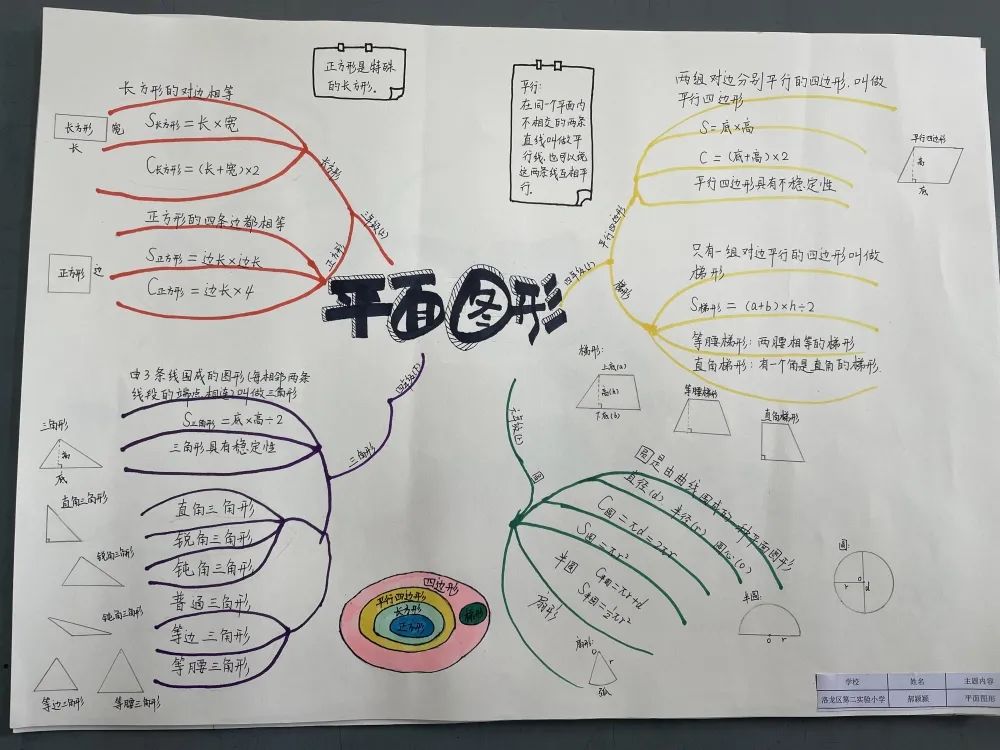 平面图形
正方形是特殊
的长方形。
平行:
在同一个平面内
不相交的两条
直线叫做平
行线,也可以说
这两条线互相平
行。
三年级(上)
长方形
长方形的对边相等
S长方形=长×宽
C长方形=(长+宽)×2
长方形
宽
长
正方形
正方形的四条边都相等
S正方形=边长×边长
C正方形=边长×4
正方形
边
四年级(上)
平行四边形
两组对边分别平行的四边形,叫做
平行四边形
S=底×高
C=(底+高)×2
平行四边形具有不稳定性
平行四边形
高
底
梯形
只有一组对边平行的四边形叫做
梯形
S梯形=(a+b)×h÷2
等腰梯形:两腰相等的梯形
直角梯形:有一个角是直角的梯形.
梯形:
上底(a)
高(h)
下底(b)
等腰梯形
直角梯形
四年级(下)
三角形
由3条线围成的图形(每相邻两条
线段的端点相连)叫做三角形
S三角形=底×高÷2
三角形具有稳定性
三角形
高
底
直角三角形
锐角三角形
钝角三角形
普通三角形
等边三角形
等腰三角形
直角三角形
锐角三角形
钝角三角形
等边三角形
等腰三角形
六年级(上)
圆
圆是由曲线围成的一种平面图形
直径(d) 半径(r) 圆心(o)
C圆=πd=2πr
S圆=πr²
半圆 C半圆=πr+d
S半圆=½πr²
扇形
圆:
o
r
d
半圆:
o r
扇形:
o
r
弧
四边形
平行四边形
长方形
正方形
梯形
学校 姓名 主题内容
洛龙区第二实验小学 郝颖颖 平面图形